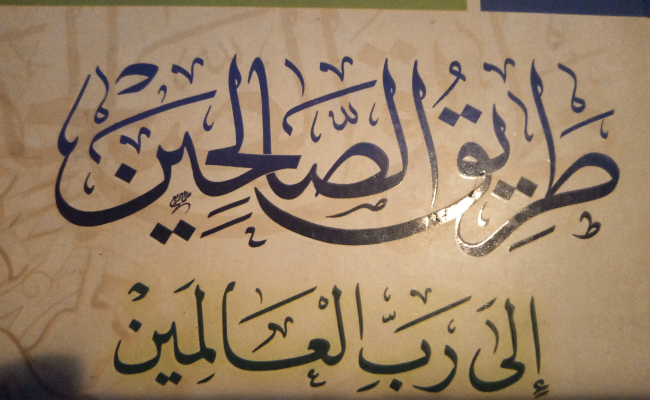 طَرِيقُ الصَّالِحِيْنَ
إِلَى رَبِّ الْعَالَمِيْنَ